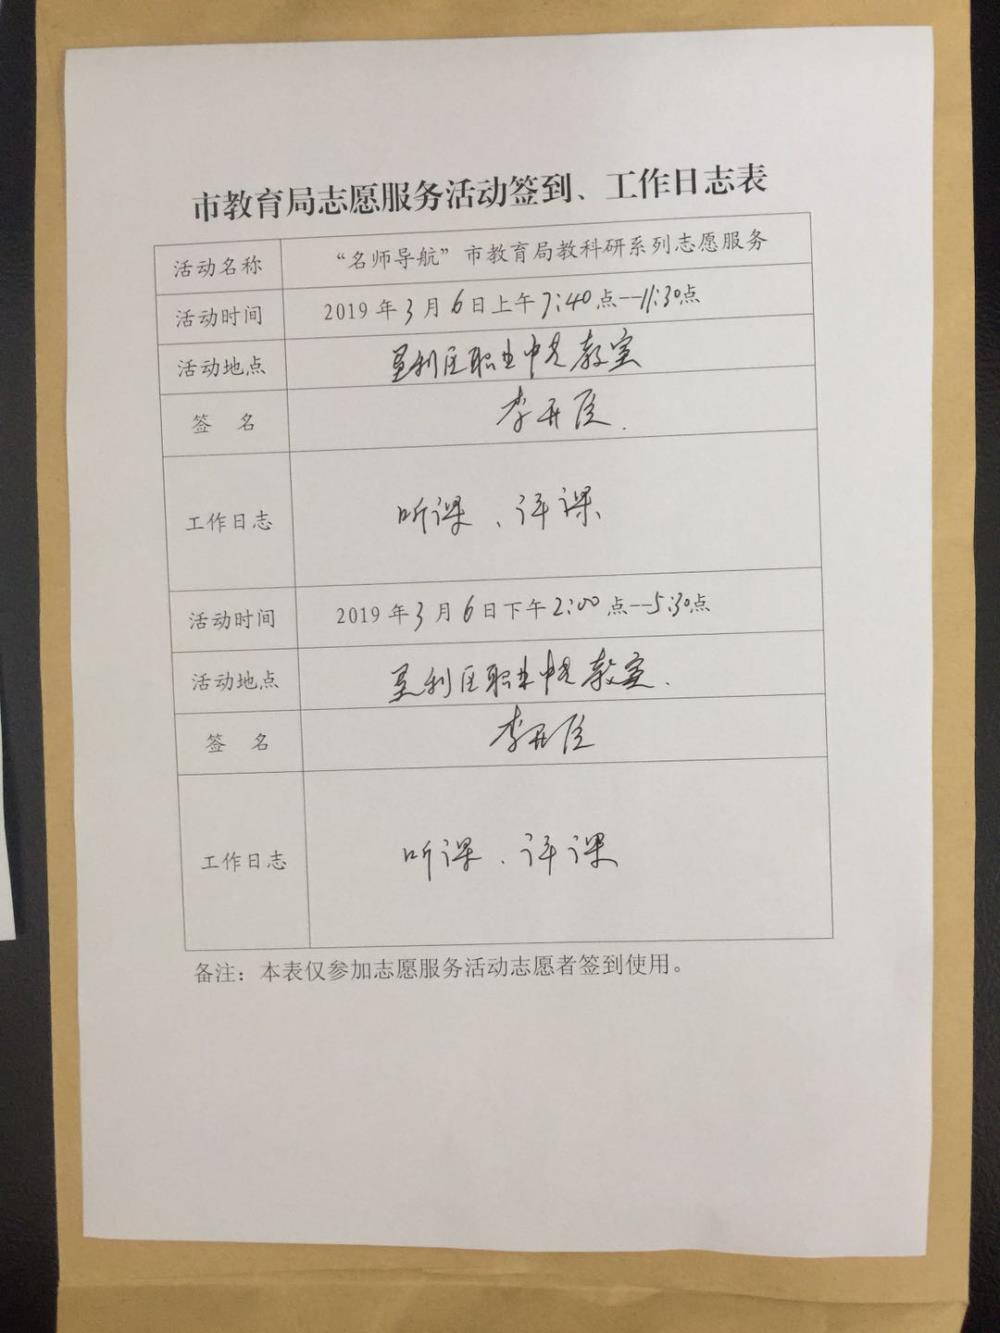 市教育局志愿服务活动签到、工作日志表
活动名称 “名师导航”市教育局教科研系列志愿服务
活动时间 2019年3月6日上午7:40点--11:30点
活动地点 垦利区职业中专教室
签 名 李
工作日志 听课、评课
活动时间 2019年3月6日下午2:00点--5:30点
活动地点 垦利区职业中专教室.
签 名 李
工作日志 听课、评课
备注：本表仅参加志愿服务活动志愿者签到使用。